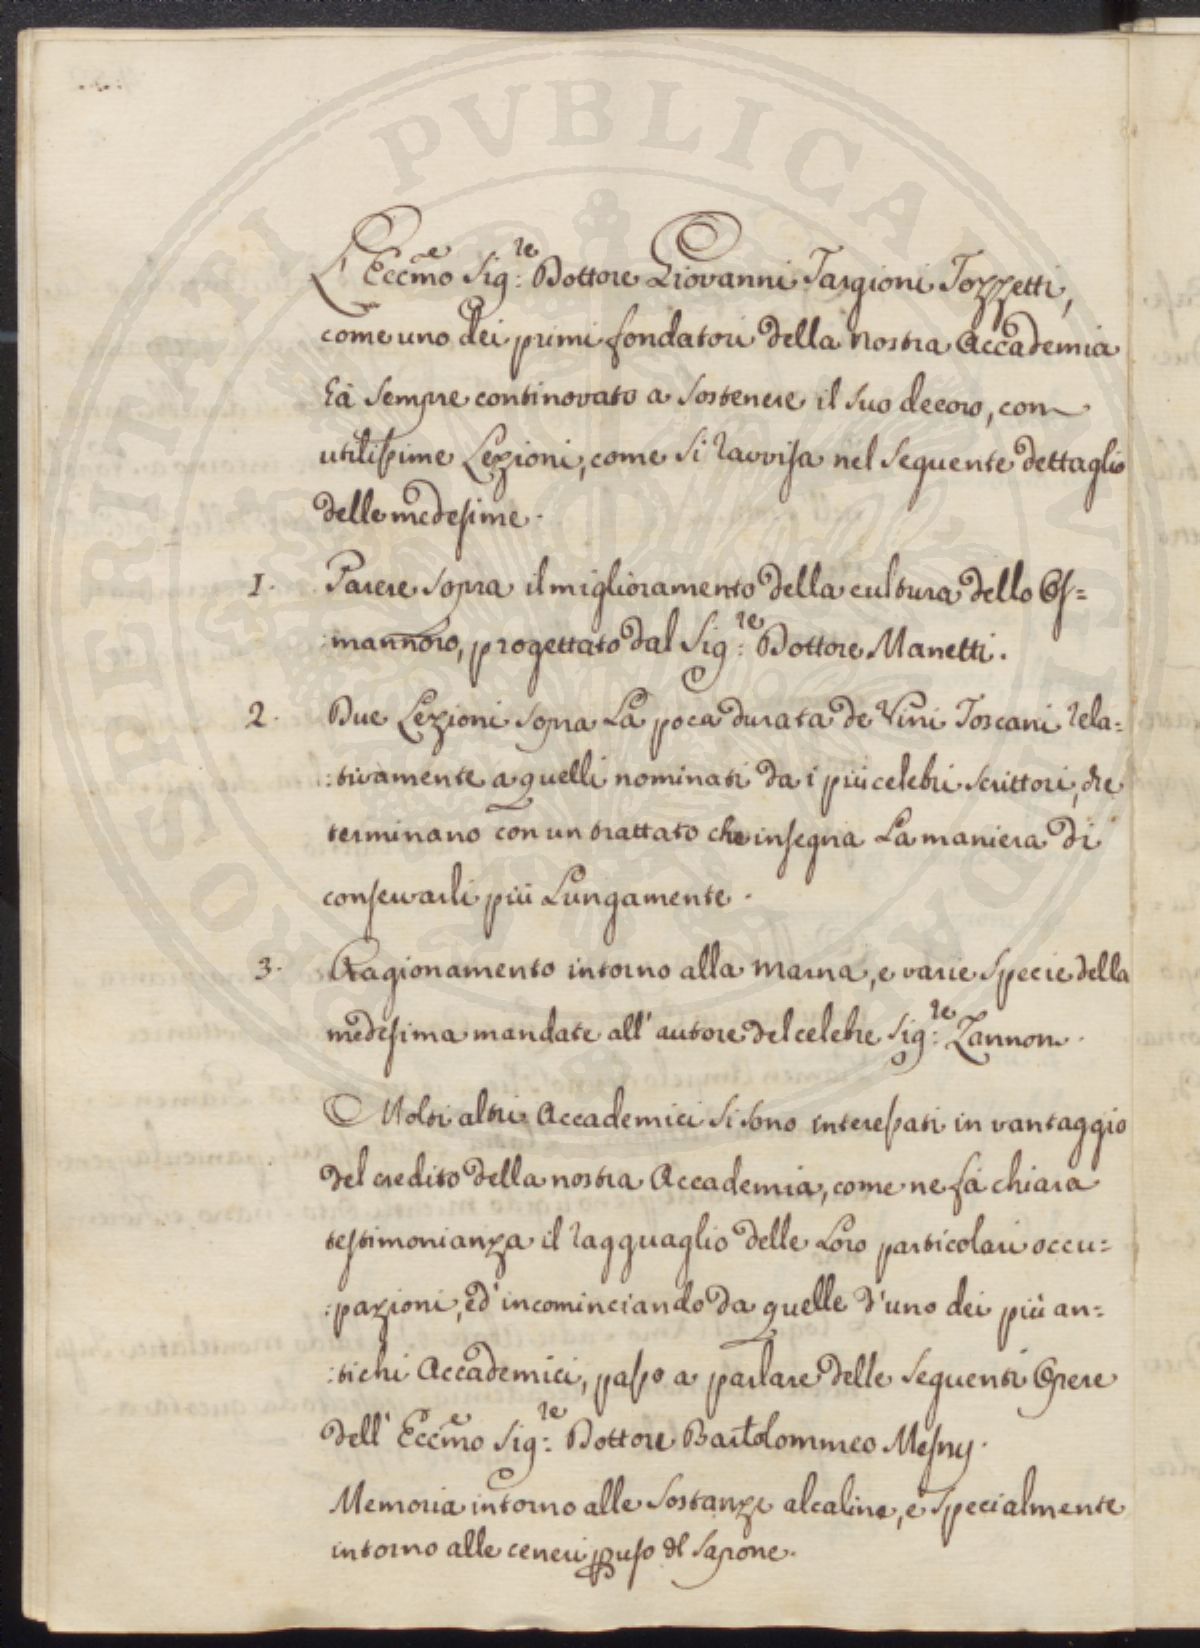 L' Eccmo Sig:re Dottore Giovanni Targioni Tozzetti,
come uno dei primi fondatori della nostra Accademia
hà sempre continovato a sostenere il suo decoro, con
utilissime Lezioni, come si ravvisa nel seguente dettaglio
delle medesime.
1. Parere sopra il miglioramento della cultura dello Os=
:mannoro, progettato dal Sig:re Dottore Manetti.
2. Due Lezioni sopra La poca durata de Vini Toscani rela=
:tivamente a quelli nominati da i più celebri scrittori, che
terminano con un trattato che insegna La maniera di
conservarli più Lungamente.
3. Ragionamento intorno alla marna, e varie specie della
medesima mandate all' autore del celebre Sig:re Zannon.
Molti altri Accademici si sono interessati in vantaggio
del credito della nostra Accademia, come ne fà chiara
testimonianza il ragguaglio delle Loro particolari occu=
:pazioni, ed' incominciando da quelle d'uno dei più an=
:tichi Accademici, passo a parlare delle seguenti Opere
dell' Eccmo Sig:re Dottore Bartolommeo Mesny.
Memoria intorno alle sostanze alcaline, e specialmente
intorno alle ceneri p uso del sapone.
PROSPERITATI PVBLICAE